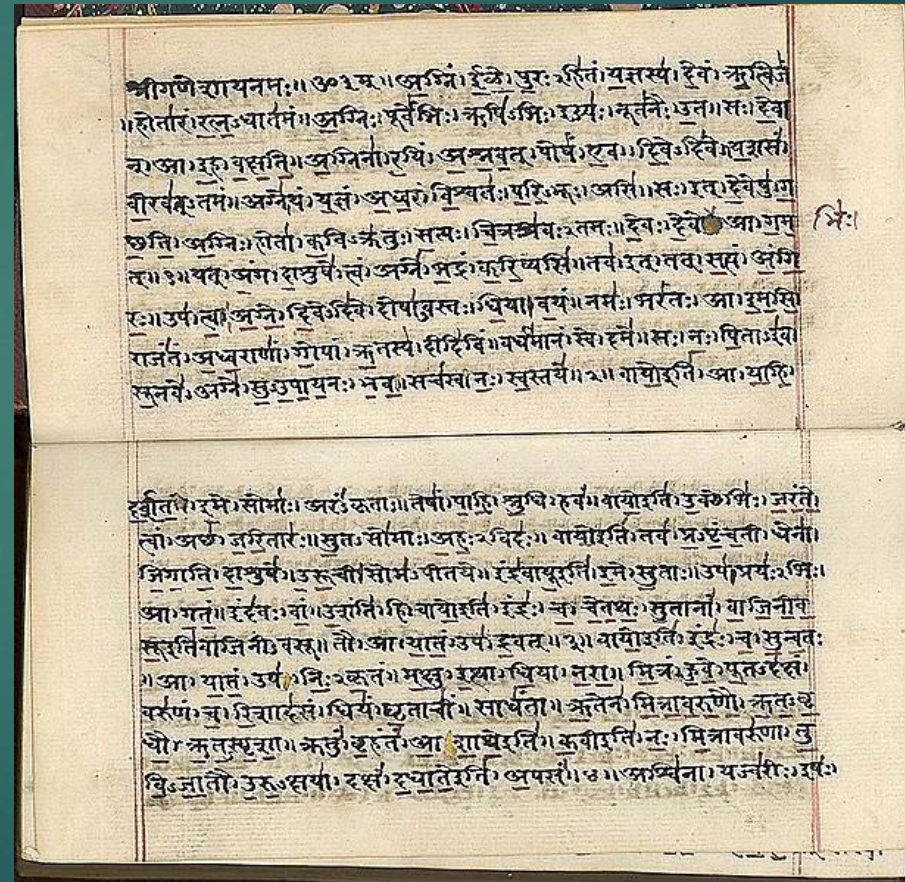 श्रीगणेशायनमः॥ॐ३म्॥अग्निं।ईळे।पुरःऽहितं।यज्ञस्य।देवं।ऋत्विजं
॥होतारं।रत्नऽधातमं॥अग्निः।पूर्वेभिः।ऋषिऽभिः।ईड्यः।नूतनैः।उत॥सः।देवा
न्।आ।इह।वक्षति॥अग्निना।रयिं।अश्नवत्।पोषं।एव।दिवेऽदिवे॥यशसं।
वीरवत्ऽतमं॥अग्ने।यं।यज्ञं।अध्वरं।विश्वतः।परिऽभूः।असि॥सः।इत्।देवेषु।ग
च्छति।अग्निः।होता।कविऽक्रतुः।सत्यः।चित्रश्रवःऽतमः॥देवः।देवे आ।गम
भिः।
त्॥१॥यत्।अंग।दाशुषे।त्वं।अग्ने।भद्रं।करिष्यसि॥तव।इत्।तत्।सत्यं।अंगि
रः॥उप।त्वा।अग्ने।दिवेऽदिवे।दोषाऽवस्तः।धिया।वयं॥नमः।भरंतः।आ।इमसि॥
राजंतं।अध्वराणां।गोपां।ऋतस्य।दीदिविं॥वर्धमानं।स्वे।दमे॥सः।नः।पिताऽइव।
सूनवे।अग्ने।सुऽउपायनः।भव॥सचस्व।नः।स्वस्तये॥२॥वायोइति।आ।याहि।
दर्शत।इमे।सोमाः।अरंऽकृताः॥तेषां।पाहि।श्रुधि।हवं॥वायोइति।उक्थेभिः।जरंते।
त्वां।अच्छ।जरितारः॥सुतऽसोमाः।अहःऽविदः॥वायोइति।तव।प्रऽपृंचती।धेना।
जिगाति।दाशुषे॥उरूची।सोमऽपीतये॥इंद्रवायूइति।इमे।सुताः।उप।प्रयःऽभिः।
आ।गतं॥इंदवः।वां।उशंति।हि॥वायोइति।इंद्रः।च।चेतथः।सुतानां।वाजिनीव
सूइतिवाजिनीऽवसू॥तौ।आ।यातं।उप।द्रवत्॥३॥वायोइति।इंद्रः।च।सुन्वतः
॥आ।यातं।उप।निःऽकृतं॥मक्षु।इत्था।धिया।नरा॥मित्रं।हुवे।पूतऽदक्षं।
वरुणं।च।रिशादसं॥धियं।घृताचीं।साधंता॥ऋतेन।मित्रावरुणौ।ऋतऽवृ
धौ।ऋतऽस्पृशा॥क्रतुं।बृहंतं।आशाथेइति॥कवीइति।नः।मित्रावरुणा।तु
विऽजातौ।उरुऽक्षया॥दक्षं।दधातेइति।अपसं॥४॥अश्विना।यज्वरीः।इषः।